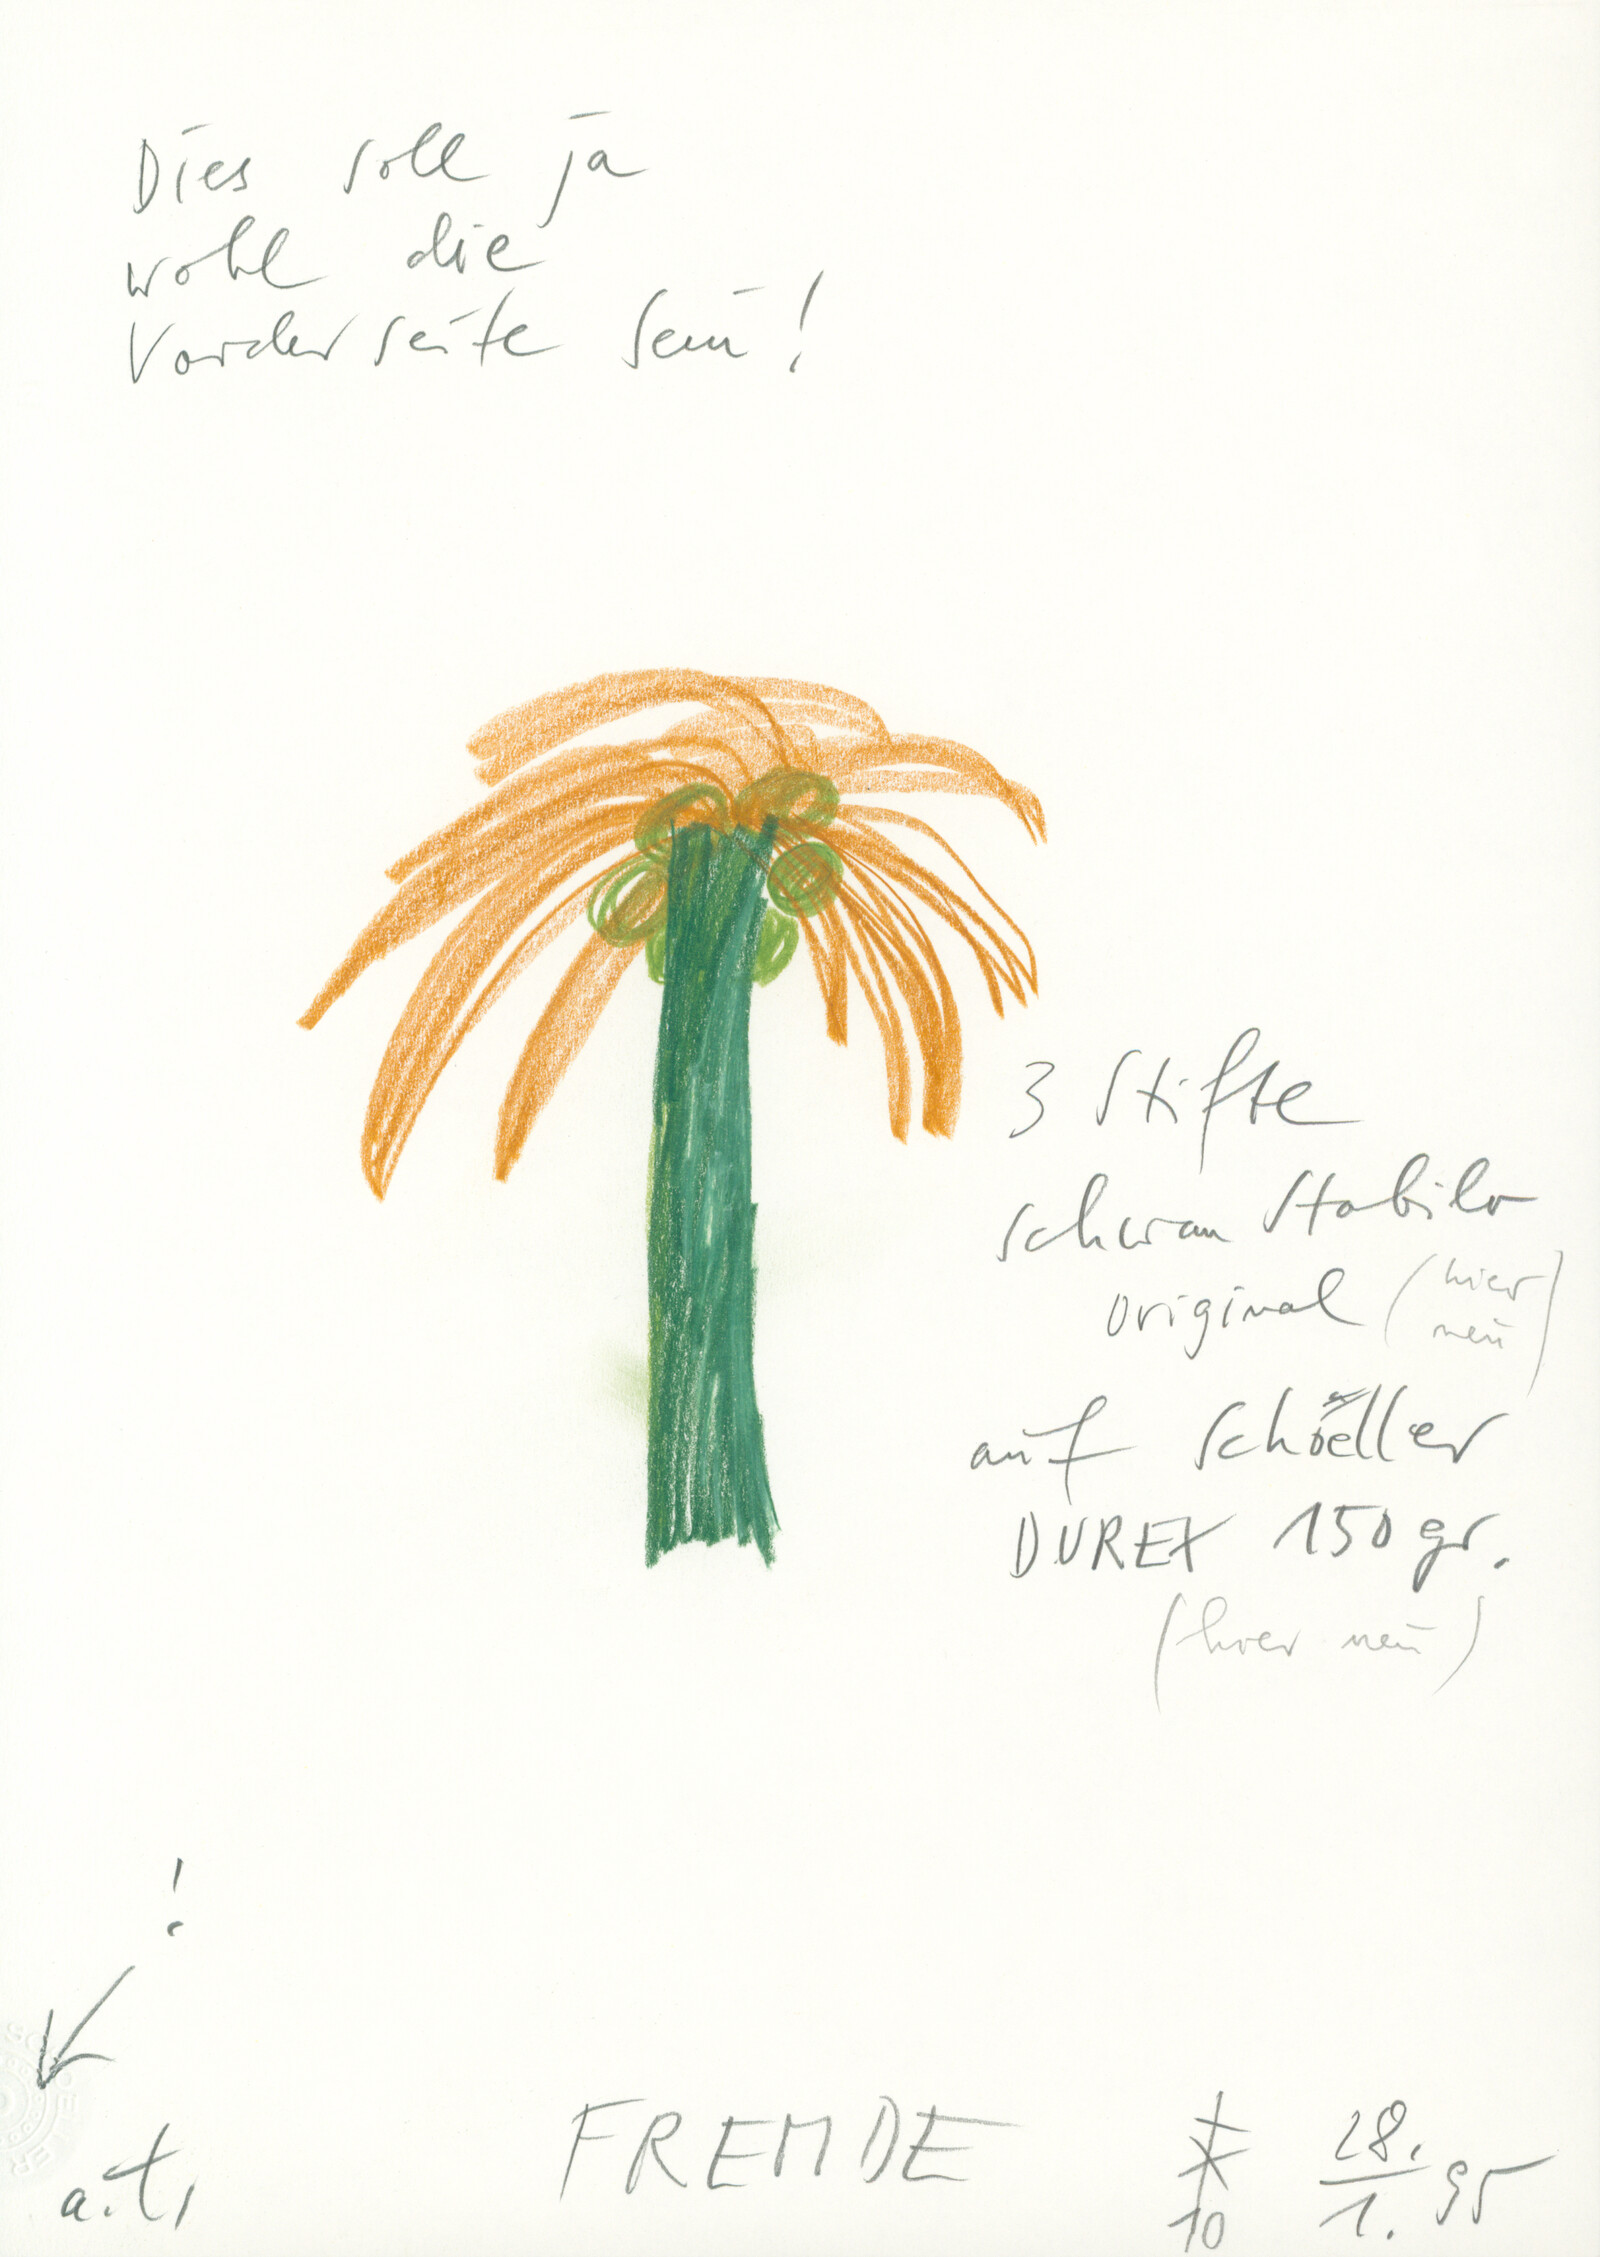 Dies soll ja
wohl die
Vorderseite sein!
3 Stifte
schwan Stabilo
original (hier
neu)
auf Schöeller
DUREX 150 gr.
(hier neu)
!
a.t.
FREMDE
10
28.
1. 95